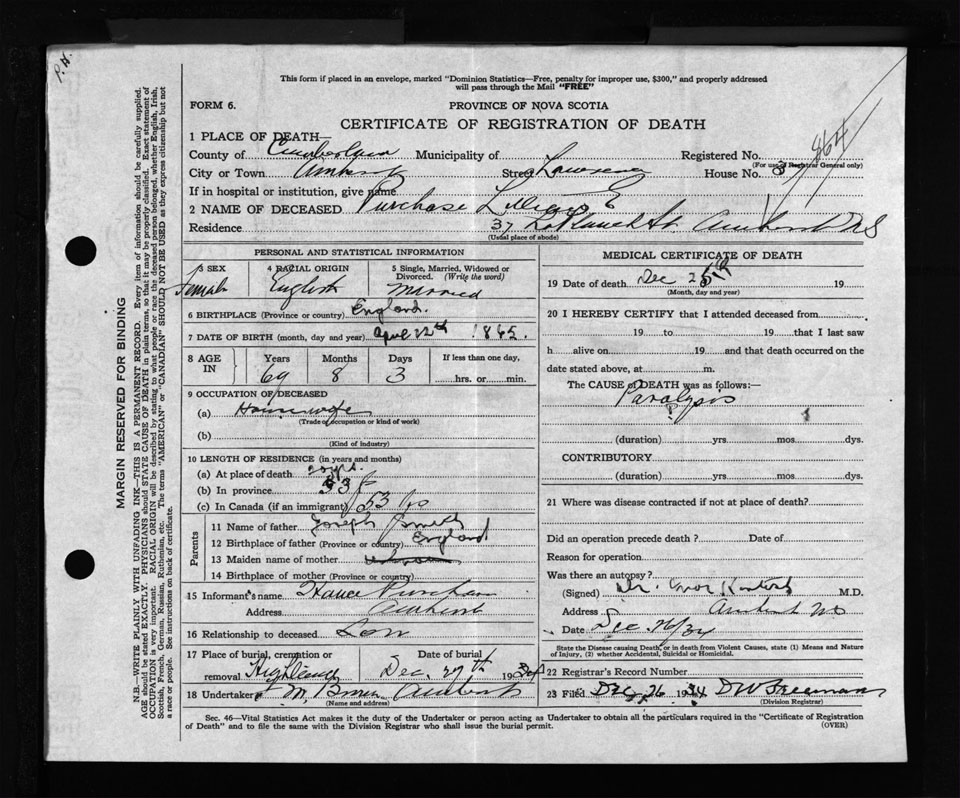 P.H.
This form if placed in an envelope, marked "Dominion Statistics—Free, penalty for improper use, $300," and properly addressed
will pass through the Mail "FREE"
FORM 6.
PROVINCE OF NOVA SCOTIA
CERTIFICATE OF REGISTRATION OF DEATH
864
1 PLACE OF DEATH—
County of Cumberland Municipality of Registered No.
(For use of Registrar General only)
City or Town Amherst Street Lawrence House No. 3
If in hospital or institution, give name
2 NAME OF DECEASED Purchase Lillian E
Residence 37 LaPlanch St. Amherst N S
(Usual place of abode)
PERSONAL AND STATISTICAL INFORMATION
3 SEX Female
4 RACIAL ORIGIN English
5 Single, Married, Widowed or Divorced. (Write the word) Married
6 BIRTHPLACE (Province or country) England.
7 DATE OF BIRTH (month, day and year) April 22th 1865.
8 AGE IN Years Months Days If less than one day,
69 8 3 hrs. or min.
9 OCCUPATION OF DECEASED
(a) Housewife
(Trade occupation or kind of work)
(b)
(Kind of industry)
10 LENGTH OF RESIDENCE (in years and months)
(a) At place of death yrs.
(b) In province 33
(c) In Canada (if an immigrant) 53
Parents
11 Name of father Joseph Smith
12 Birthplace of father (Province or country) England
13 Maiden name of mother
14 Birthplace of mother (Province or country)
15 Informant's name Purchase
Address Amherst
16 Relationship to deceased Son
17 Place of burial, cremation or removal Highland
Date of burial Dec. 27th 1934
18 Undertaker Brown Amherst
(Name and address)
MEDICAL CERTIFICATE OF DEATH
19 Date of death Dec 25 19
(Month, day and year)
20 I HEREBY CERTIFY that I attended deceased from
19 to 19 that I last saw
h alive on 19 and that death occurred on the
date stated above, at m.
The CAUSE OF DEATH was as follows:—
Paralysis
(duration) yrs. mos. dys.
CONTRIBUTORY
(duration) yrs. mos. dys.
21 Where was disease contracted if not at place of death?
Did an operation precede death? Date of
Reason for operation
Was there an autopsy?
(Signed) M.D.
Address Amherst NS
Date Dec 26/34
State the Disease causing Death, or in death from Violent Causes, state (1) Means and Nature
of Injury, (2) whether Accidental, Suicidal or Homicidal.
22 Registrar's Record Number
23 Filed Dec. 26 1934 DW Freeman
(Division Registrar)
Sec. 46—Vital Statistics Act makes it the duty of the Undertaker or person acting as Undertaker to obtain all the particulars required in the "Certificate of Registration
of Death" and to file the same with the Division Registrar who shall issue the burial permit.
(OVER)
MARGIN RESERVED FOR BINDING
N.B.—WRITE PLAINLY WITH UNFADING INK—THIS IS A PERMANENT RECORD. Every item of information should be carefully supplied.
AGE should be stated EXACTLY. PHYSICIANS should STATE CAUSE OF DEATH in plain terms, so that it may be properly classified. Exact statement of
OCCUPATION is very important. RACIAL ORIGIN will be described by stating to what people or race the deceased person belonged, whether English, Irish,
Scottish, French, German, Russian, Ruthenian, etc. The terms "AMERICAN" or "CANADIAN" SHOULD NOT BE USED as they express citizenship but not
a race or people. See instructions on back of certificate.